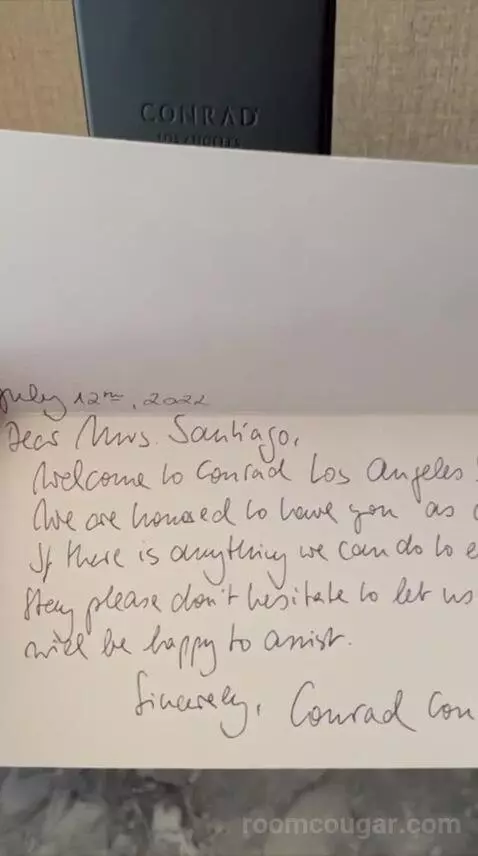 CONRAD
LOS ANGELES
July 12th, 2022
Dear Mrs. Santiago,
Welcome to Conrad Los Angeles
We are honored to have you as
If there is anything we can do to e
Stay please don't hesitate to let us
will be happy to assist.
Sincerely, Conrad Con
roomcougar.com